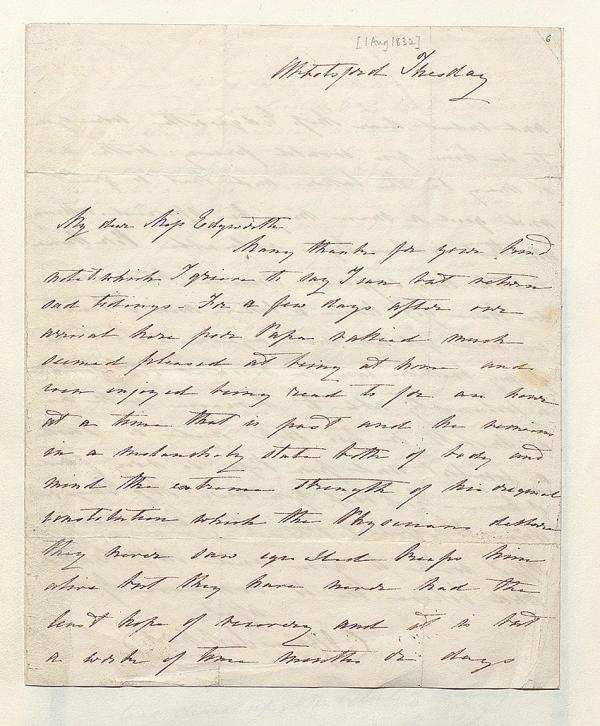 [1 Aug 1832]
6
Abbotsford Tuesday
My dear Miss Edgeworth
Many thanks for your kind
note which I grieve to say I can but return
sad tidings. For a few days after our
arrival here poor Papa rallied much
seemed pleased at being at home and
even enjoyed being read to for an hour
at a time that is past and he remains
in a melancholy state both of body and
mind the extreme strength of his original
constitution which the Physicians declare
they never saw equalled keeps him
alive but they have never had the
least hope of recovery and it is but
a work of time months or days